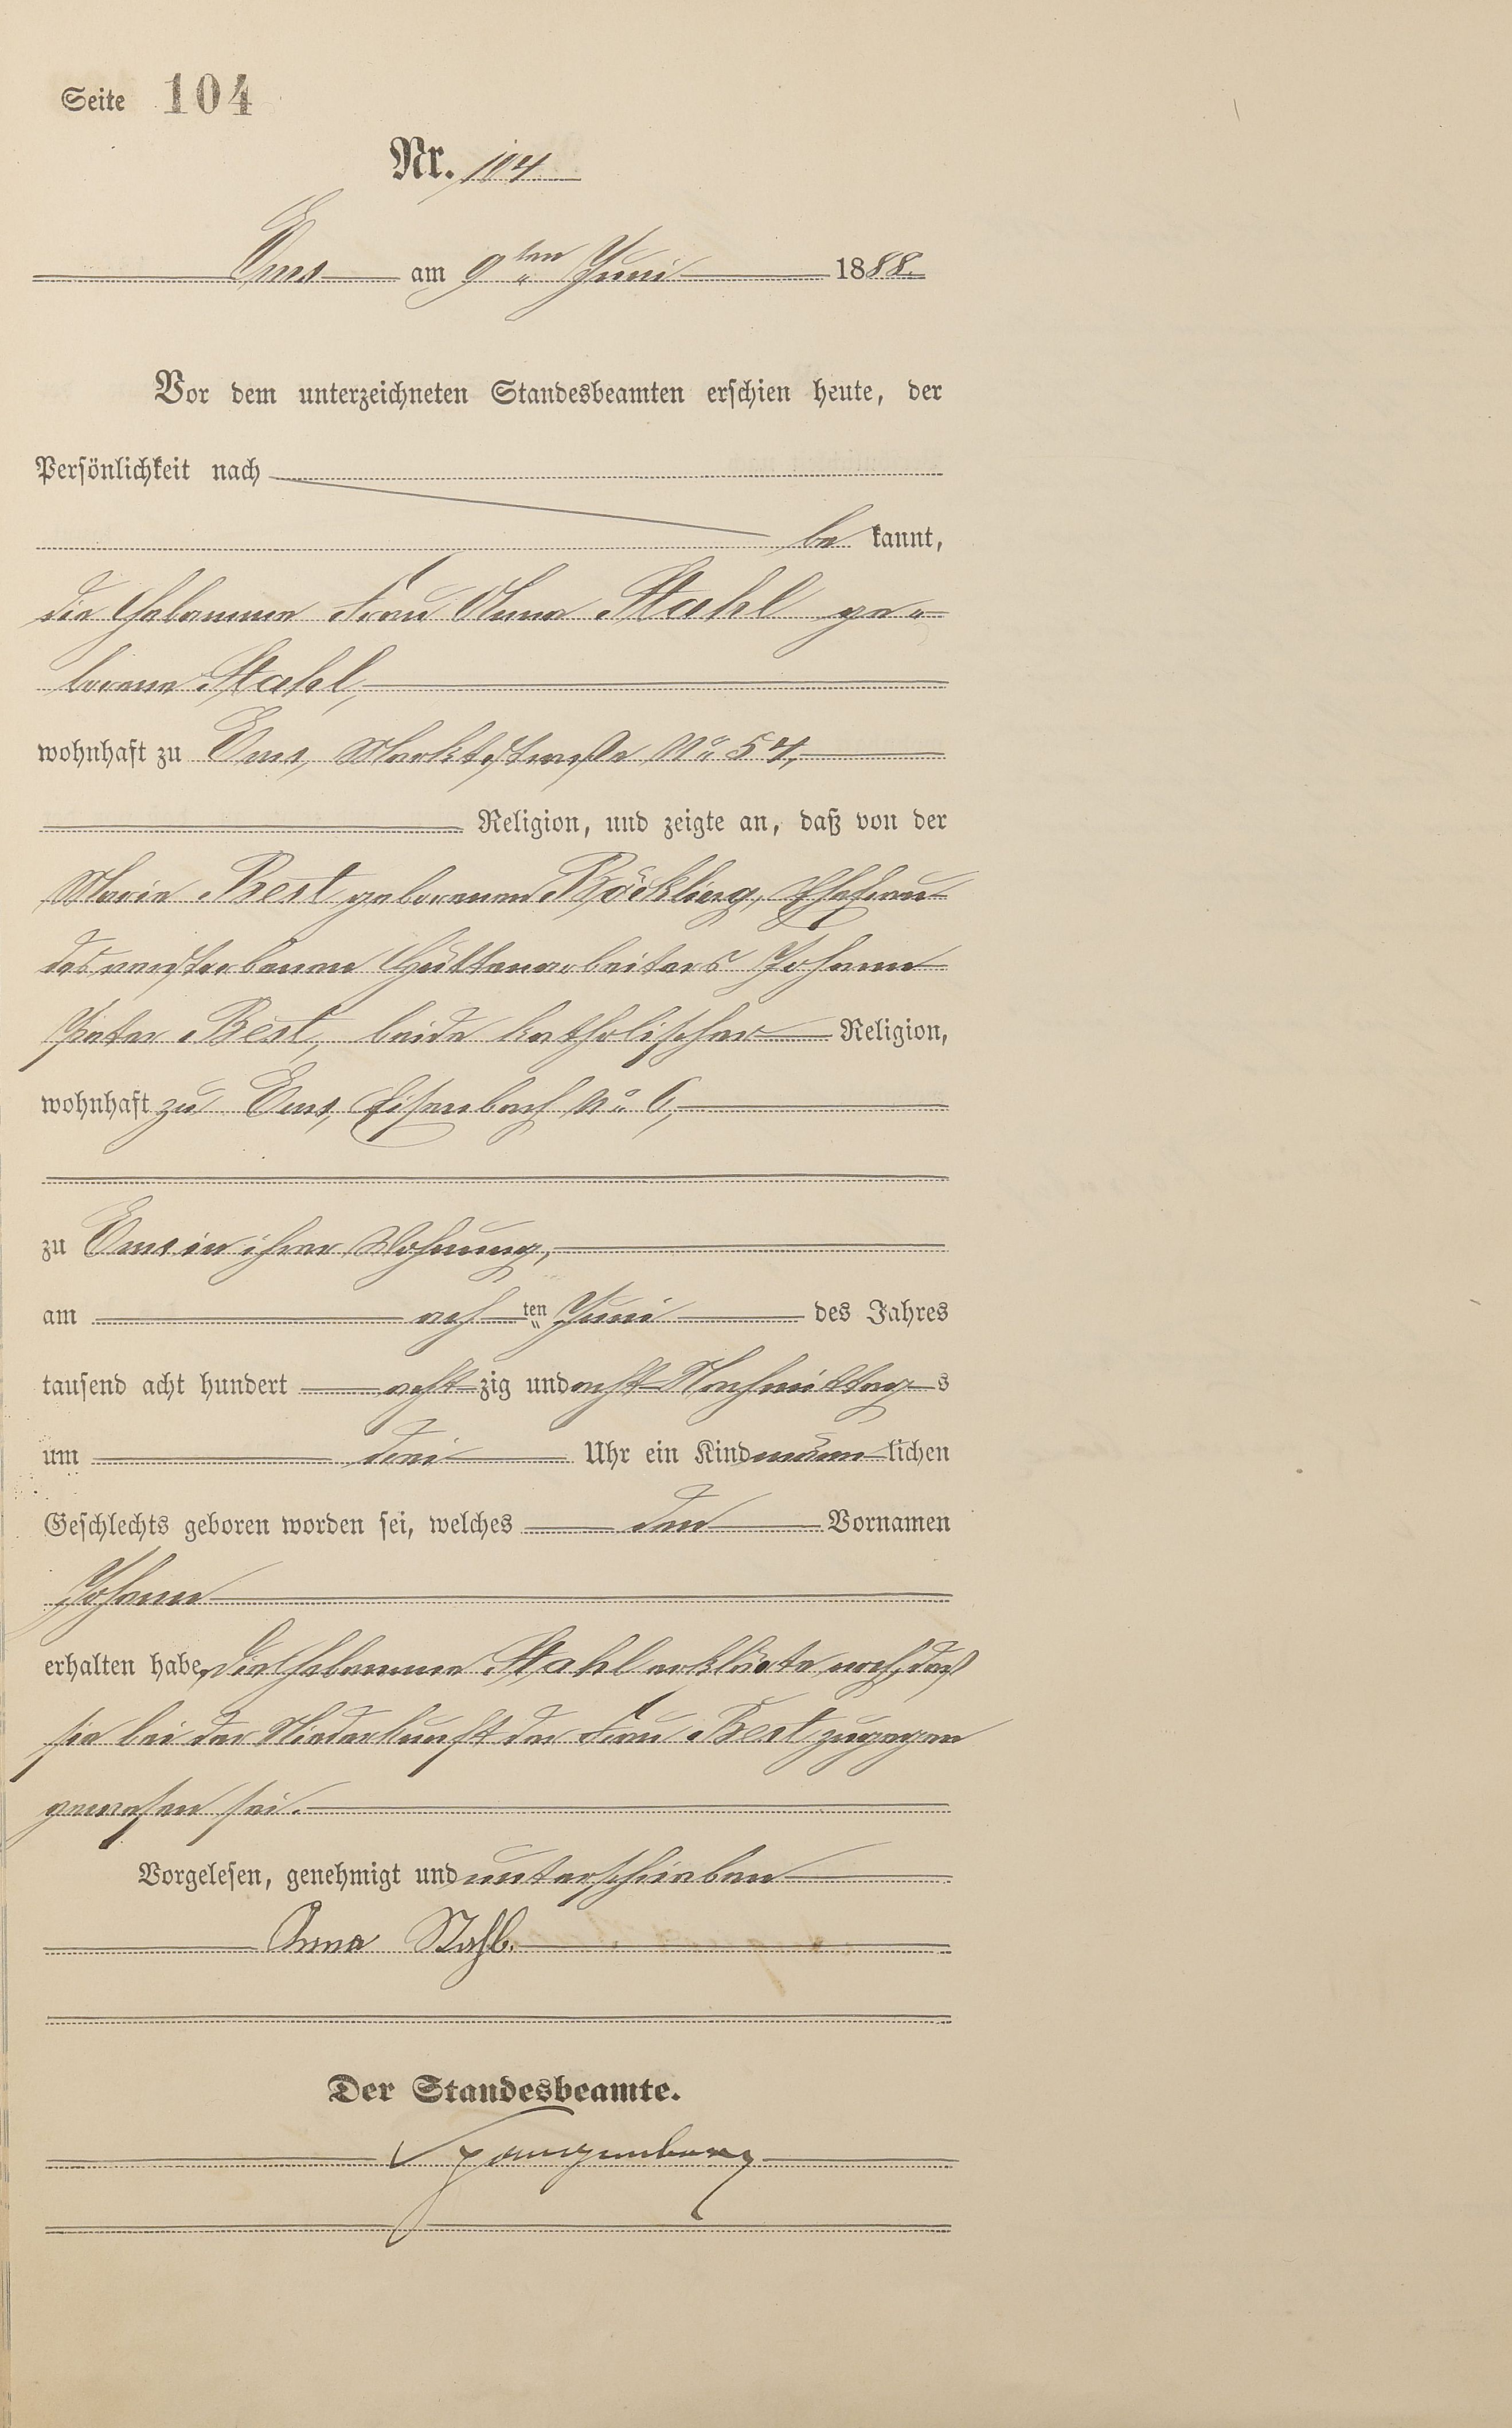 Seite 104
Nr. 104
Ems am 9ten Juni 1888.
Vor dem unterzeichneten Standesbeamten erschien heute, der
Persönlichkeit nach
be kannt,
die Hebamme Frau Anna Stahl ge-
borene Stahl,
wohnhaft zu Ems, Marktstraße No 54,
Religion, und zeigte an, daß von der
Marie Best geborenen Böckling, Ehefrau
des verstorbenen Hüttenarbeiters Johann
Peter Best, beide katholischer Religion,
wohnhaft zu Ems, Eisenbach No 6,
zu Ems in ihrer Wohnung,
am ach ten Juni des Jahres
tausend acht hundert acht zig und acht Nachmittag s
um drei Uhr ein Kind männ lichen
Geschlechts geboren worden sei, welches den Vornamen
Johann
erhalten habe, die Hebamme Stahl erklärte noch, daß
sie bei der Niederkunft der Frau Best zugegen
gewesen sei.
Vorgelesen, genehmigt und unterschrieben
Anna Stahl.
Der Standesbeamte.
Spangenberg